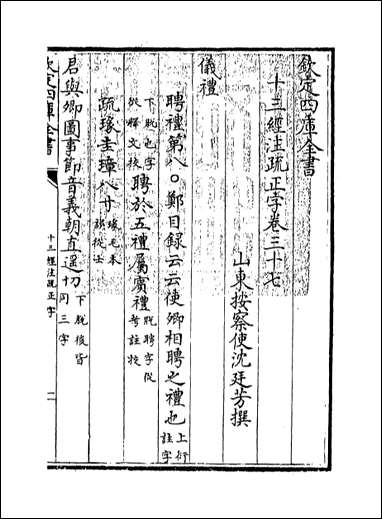 欽定四庫全書
十三經注疏正字卷三十七
山東按察使沈廷芳撰
儀禮
聘禮第八〇鄭目録云云使卿相聘之禮也上衍註字
下脱也字從釋文校聘於五禮屬賓禮脱聘字從考註校
疏瑑圭璋八寸瑑毛本誤從土
君與卿圖事節音義朝直遥切下脱後皆同三字
欽定四庫全書
十三經注疏正字
一